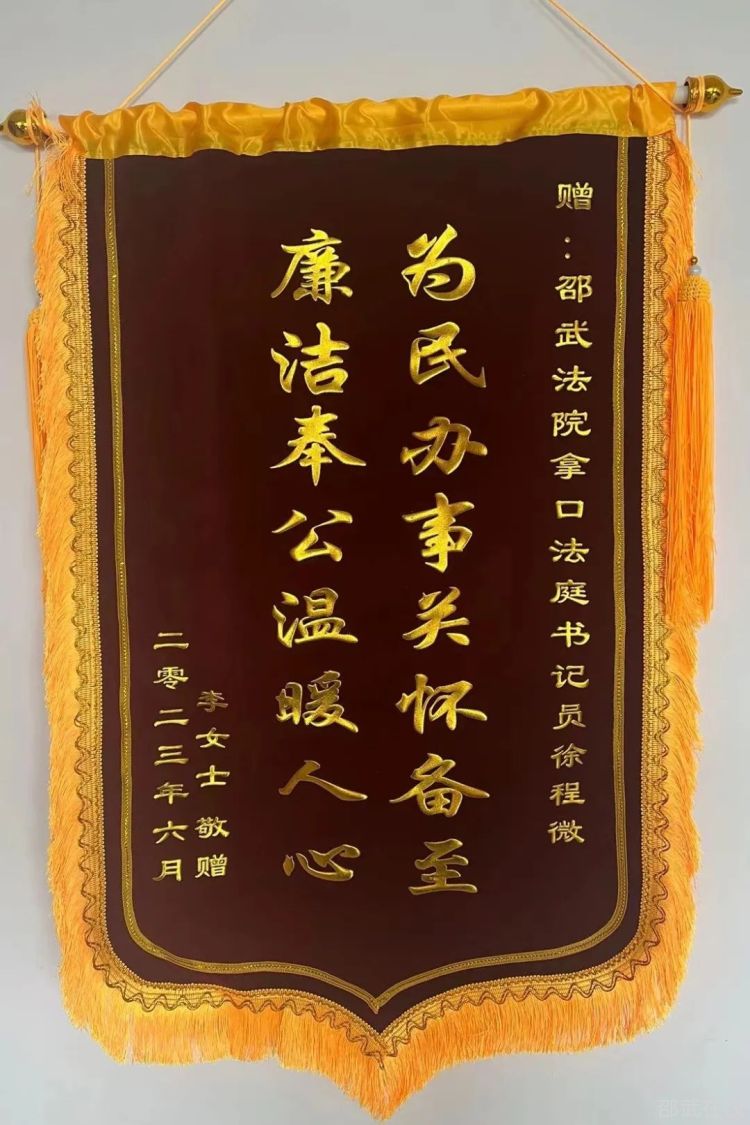 赠：邵武法院拿口法庭书记员徐程微
为民办事关怀备至
廉洁奉公温暖人心
李女士 敬赠
二零二三年六月